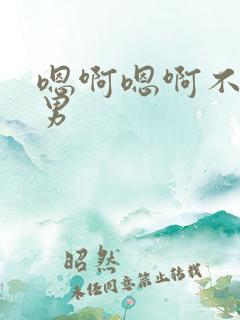 嗯啊嗯啊不
男
昭然
未经同意禁止转载